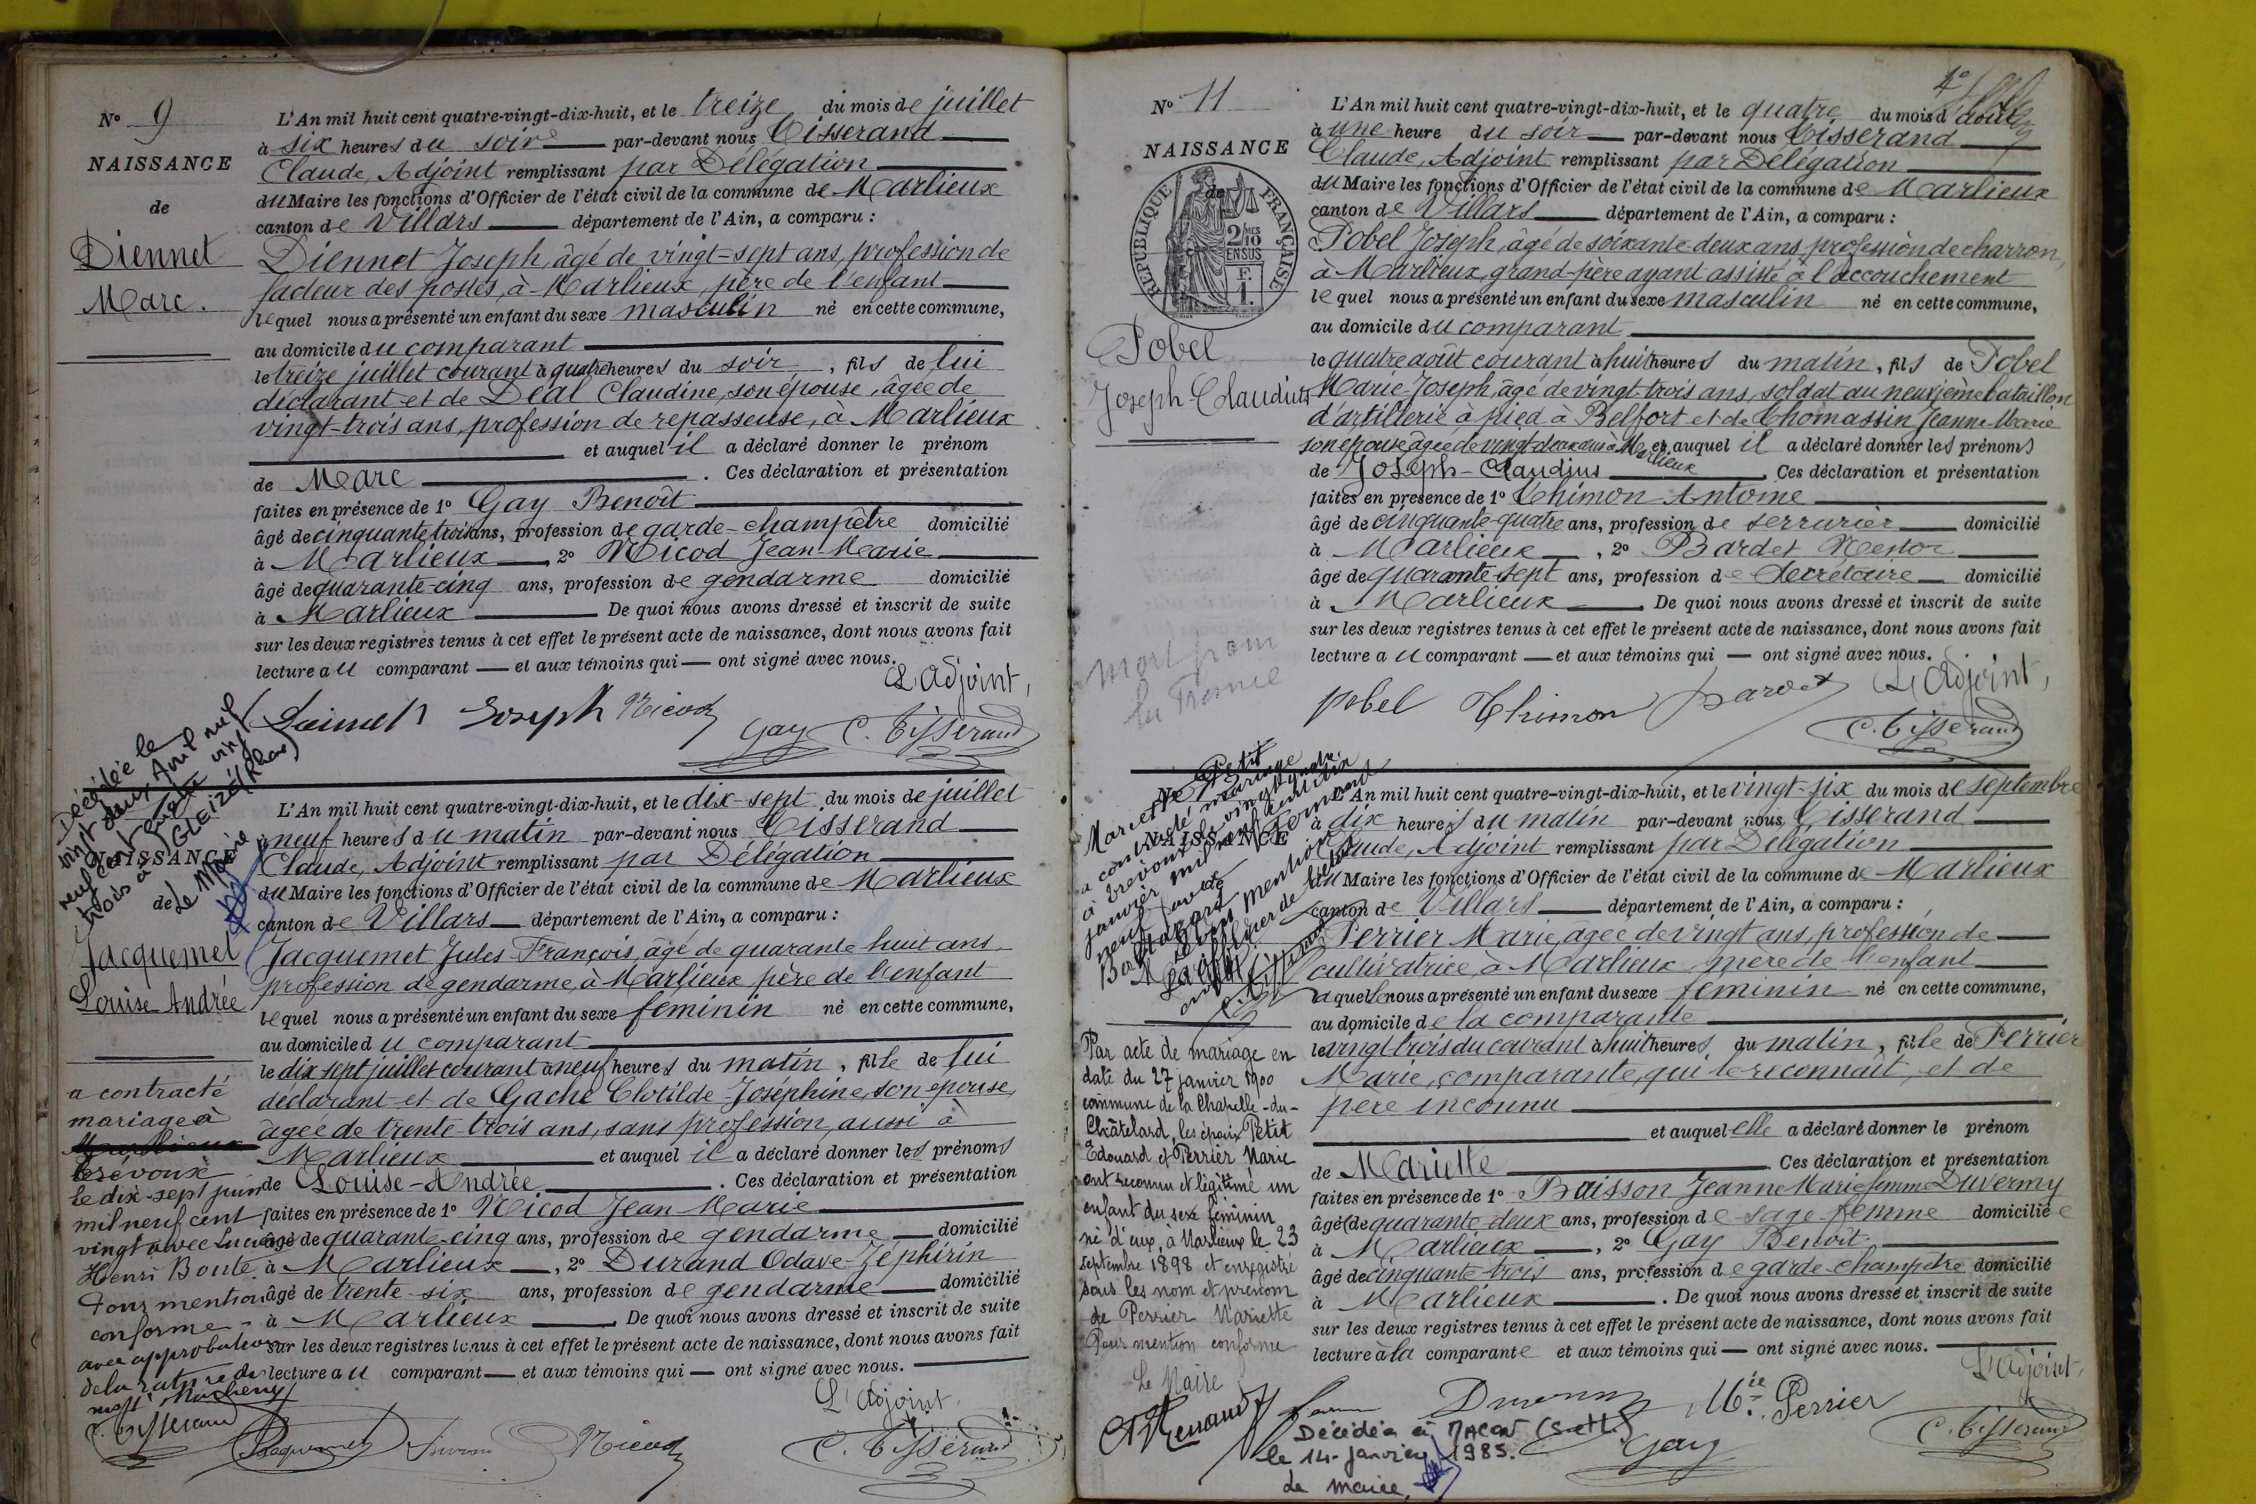 Nº 9
NAISSANCE
de
Diennet
Marc.
L'An mil huit cent quatre-vingt-dix-huit, et le treize du mois de juillet
à six heures du soir par-devant nous Tisserand
Claude, Adjoint remplissant par Délégation
du Maire les fonctions d'Officier de l'état civil de la commune de Marlieux
canton de Villars département de l'Ain, a comparu :
Diennet Joseph, âgé de vingt-sept ans, profession de
facteur des postes, à Marlieux, père de l'enfant
lequel nous a présenté un enfant du sexe masculin né en cette commune,
au domicile du comparant
le treize juillet courant à quatre heures du soir, fils de lui
déclarant et de Déal Claudine, son épouse, âgée de
vingt-trois ans, profession de repasseuse, à Marlieux
et auquel il a déclaré donner le prénom
de Marc. Ces déclaration et présentation
faites en présence de 1º Gay Benoît
âgé de cinquante trois ans, profession de garde-champêtre domicilié
à Marlieux, 2º Nicod Jean-Marie
âgé de quarante-cinq ans, profession de gendarme domicilié
à Marlieux. De quoi nous avons dressé et inscrit de suite
sur les deux registres tenus à cet effet le présent acte de naissance, dont nous avons fait
lecture au comparant et aux témoins qui ont signé avec nous.
L'Adjoint,
Joseph Nicod
Gay C. Tisserand
Décédée le
vingt deux Avril mil
neuf cent quatre vingt
trois à GLEIZÉ (Rhône)
Le Maire
NAISSANCE
de
Jacquemet
Louise Andrée
L'An mil huit cent quatre-vingt-dix-huit, et le dix-sept du mois de juillet
à neuf heures du matin par-devant nous Tisserand
Claude, Adjoint remplissant par Délégation
du Maire les fonctions d'Officier de l'état civil de la commune de Marlieux
canton de Villars département de l'Ain, a comparu :
Jacquemet Jules François, âgé de quarante huit ans
profession de gendarme, à Marlieux père de l'enfant
lequel nous a présenté un enfant du sexe féminin né en cette commune,
au domicile du comparant
le dix sept juillet courant à neuf heures du matin, fille de lui
déclarant et de Gache Clotilde Joséphine, son épouse,
âgée de trente-trois ans, sans profession, aussi à
Marlieux et auquel il a déclaré donner les prénoms
de Louise-Andrée. Ces déclaration et présentation
faites en présence de 1º Nicod Jean Marie
âgé de quarante-cinq ans, profession de gendarme domicilié
à Marlieux, 2º Durand Odave-Zéphirin
âgé de trente-six ans, profession de gendarme domicilié
à Marlieux. De quoi nous avons dressé et inscrit de suite
sur les deux registres tenus à cet effet le présent acte de naissance, dont nous avons fait
lecture au comparant et aux témoins qui ont signé avec nous.
L'Adjoint,
Jacquemet Nicod C. Tisserand
a contracté
mariage à
Marlieux
Trévoux
le dix-sept juin
mil neuf cent
vingt avec Lucien
Henri Boule.
Pour mention
conforme
avec approbation
de la rature du
mot
C. Tisserand
Nº 11
NAISSANCE
de
RÉPUBLIQUE FRANÇAISE
2/10 EN SUS
F. 1.
Pobel
Joseph Claudius
L'An mil huit cent quatre-vingt-dix-huit, et le quatre du mois d'août
à une heure du soir par-devant nous Tisserand
Claude, Adjoint remplissant par Délégation
du Maire les fonctions d'Officier de l'état civil de la commune de Marlieux
canton de Villars département de l'Ain, a comparu :
Pobel Joseph, âgé de soixante-deux ans, profession de charron,
à Marlieux, grand-père ayant assisté à l'accouchement
lequel nous a présenté un enfant du sexe masculin né en cette commune,
au domicile du comparant
le quatre août courant à huit heures du matin, fils de Pobel
Marie-Joseph, âgé de vingt-trois ans, soldat au neuvième bataillon
d'artillerie à pied à Belfort et de Thomassin Jeanne-Marie
son épouse âgée de vingt-deux ans à Marlieux et auquel il a déclaré donner les prénoms
de Joseph-Claudius. Ces déclaration et présentation
faites en présence de 1º Thimon Antoine
âgé de cinquante-quatre ans, profession de serrurier domicilié
à Marlieux, 2º Bardet Nestor
âgé de quarante-sept ans, profession de Secrétaire domicilié
à Marlieux. De quoi nous avons dressé et inscrit de suite
sur les deux registres tenus à cet effet le présent acte de naissance, dont nous avons fait
lecture au comparant et aux témoins qui ont signé avec nous.
L'Adjoint,
Mort pour
la France
pobel Thimon Bardet
C. Tisserand
NAISSANCE
Petit
Mariette
a contracté mariage
à Trévoux le vingt quatre
janvier mil neuf cent
neuf avec
L'An mil huit cent quatre-vingt-dix-huit, et le vingt-six du mois de septembre
à dix heures du matin par-devant nous Tisserand
Claude, Adjoint remplissant par Délégation
du Maire les fonctions d'Officier de l'état civil de la commune de Marlieux
canton de Villars département de l'Ain, a comparu :
Perrier Marie, âgée de vingt ans, profession de
cultivatrice, à Marlieux, mère de l'enfant
laquelle nous a présenté un enfant du sexe féminin né en cette commune,
au domicile de la comparante
le vingt trois du courant à huit heures du matin, fille de Perrier
Marie, comparante, qui le reconnaît, et de
père inconnu
et auquel elle a déclaré donner le prénom
de Mariette. Ces déclaration et présentation
faites en présence de 1º Baisson Jeanne Marie femme Duvermy
âgée de quarante deux ans, profession de sage femme domiciliée
à Marlieux, 2º Gay Benoît
âgé de cinquante trois ans, profession de garde-champêtre domicilié
à Marlieux. De quoi nous avons dressé et inscrit de suite
sur les deux registres tenus à cet effet le présent acte de naissance, dont nous avons fait
lecture à la comparante et aux témoins qui ont signé avec nous.
L'Adjoint,
Mie Perrier
Gay C. Tisserand
Par acte de mariage en
date du 27 janvier 1900
commune de la Chapelle-du-
Châtelard, les époux Petit
Edouard et Perrier Marie
ont reconnu et légitimé un
enfant du sexe féminin
né d'eux, à Marlieux le 23
septembre 1898 et enregistré
sous les nom et prénom
de Perrier Mariette
Pour mention conforme
Le Maire
Décédée à MACON (S. et L.)
le 14 janvier 1985.
Le Maire,